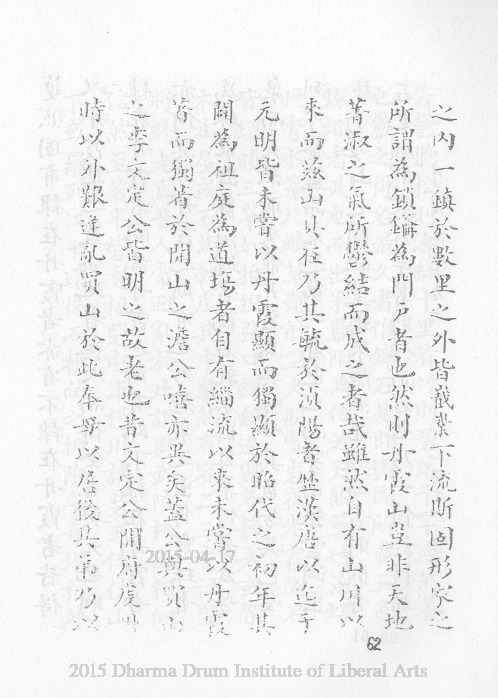 之內一鎮於數里之外皆截業下流斯固形家之
所謂為鎖鑰為門戶者也然則丹霞山豈非天地
菁淑之氣所鬱結而成之者哉雖然自有山川以
來而茲山其在乃其毓於湞陽者歷漢唐以迄于
元明皆未嘗以丹霞顯而獨顯於昭代之初年其
闢為祖庭為道場者自有緇流以來未嘗以丹霞
著而獨著於開山之澹公嘻亦異矣蓋公與買山
之李文定公皆明之故老也昔文定公開府虔州
時以外艱逢亂買山於此奉母以居後其弟乃以
62
2015-04-17
2015 Dharma Drum Institute of Liberal Arts